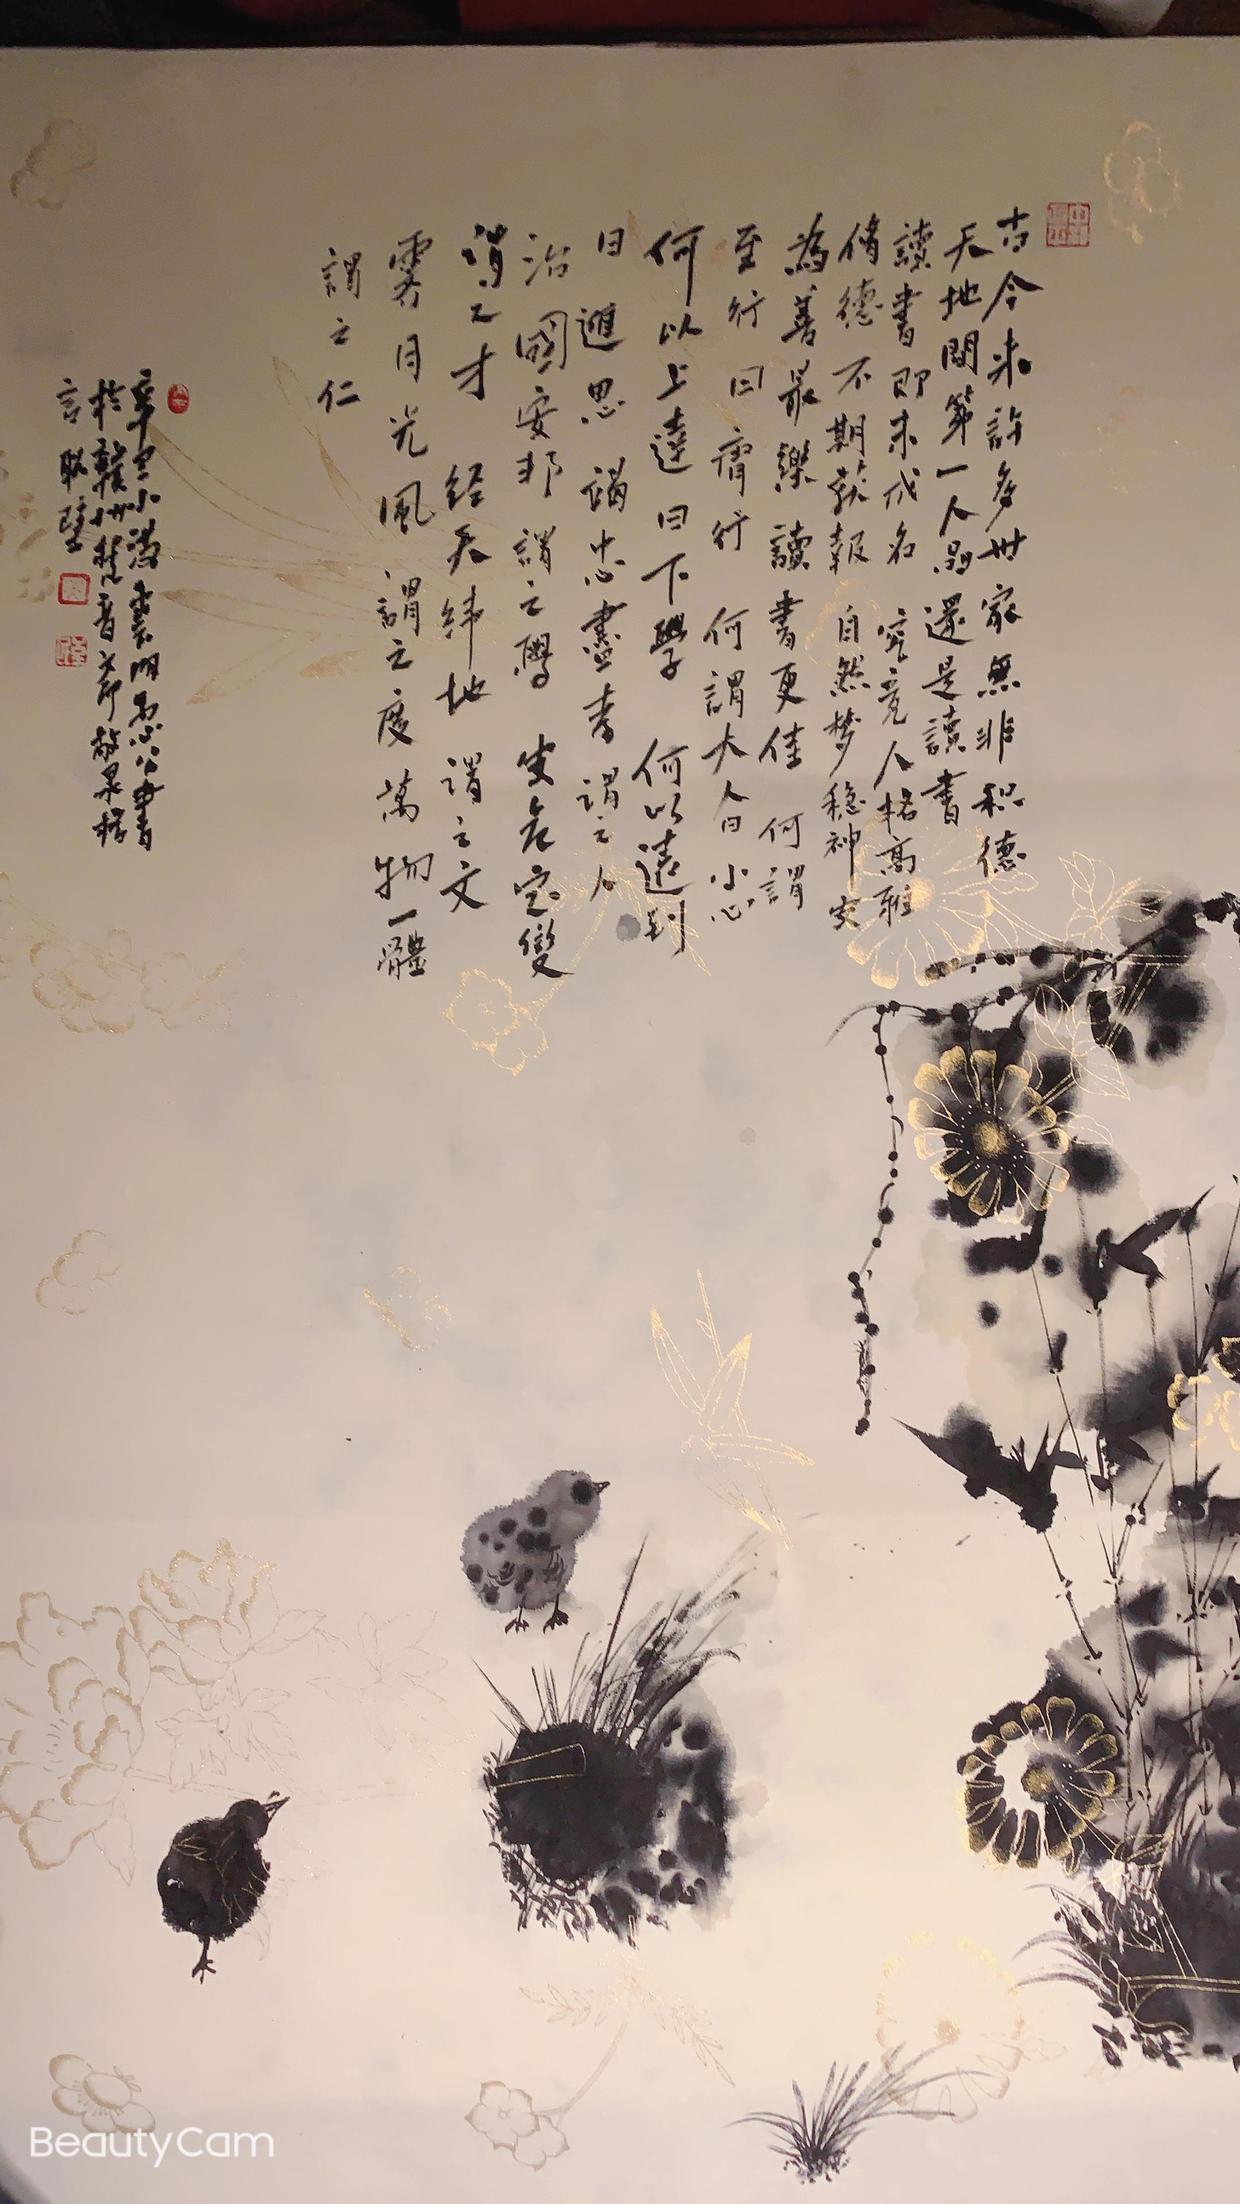 古今来許多世家無非积德
天地間第一人品還是讀書
讀書即未成名 究竟人格高雅
脩德不期获報 自然梦穏神安
為善最樂讀書更佳 何謂
至行曰庸行 何謂大人曰小心
何以上達曰下學 何以遠到
曰邇思 竭忠盡孝謂之人
治國安邦謂之學 安危定變
謂之才 经天緯地謂之文
霽月光風謂之度 萬物一體
謂之仁
辛丑小滿書
於贛州
言联璧
BeautyCam